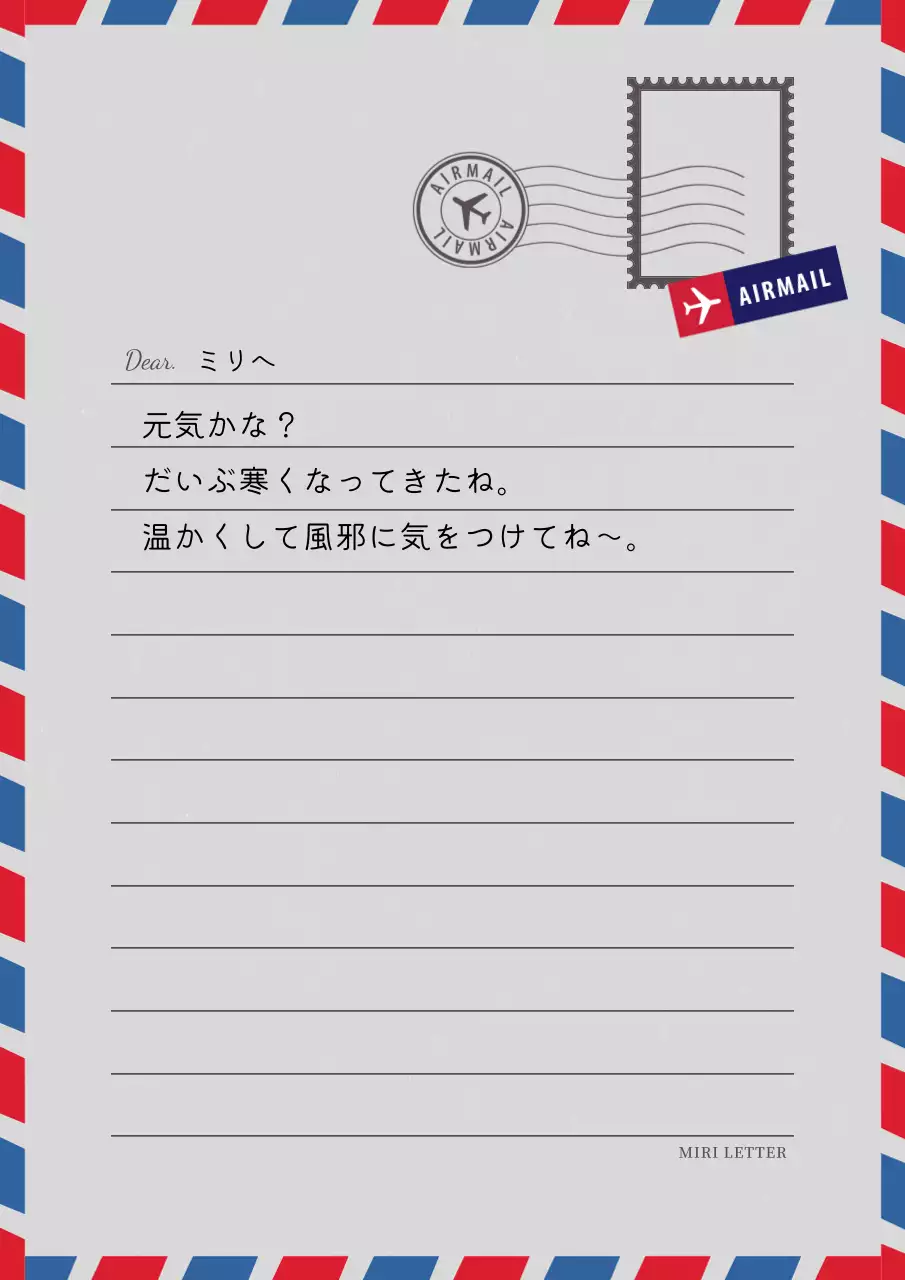 AIRMAIL
AIRMAIL
AIRMAIL
Dear. ミリへ
元気かな？
だいぶ寒くなってきたね。
温かくして風邪に気をつけてね～。
MIRI LETTER